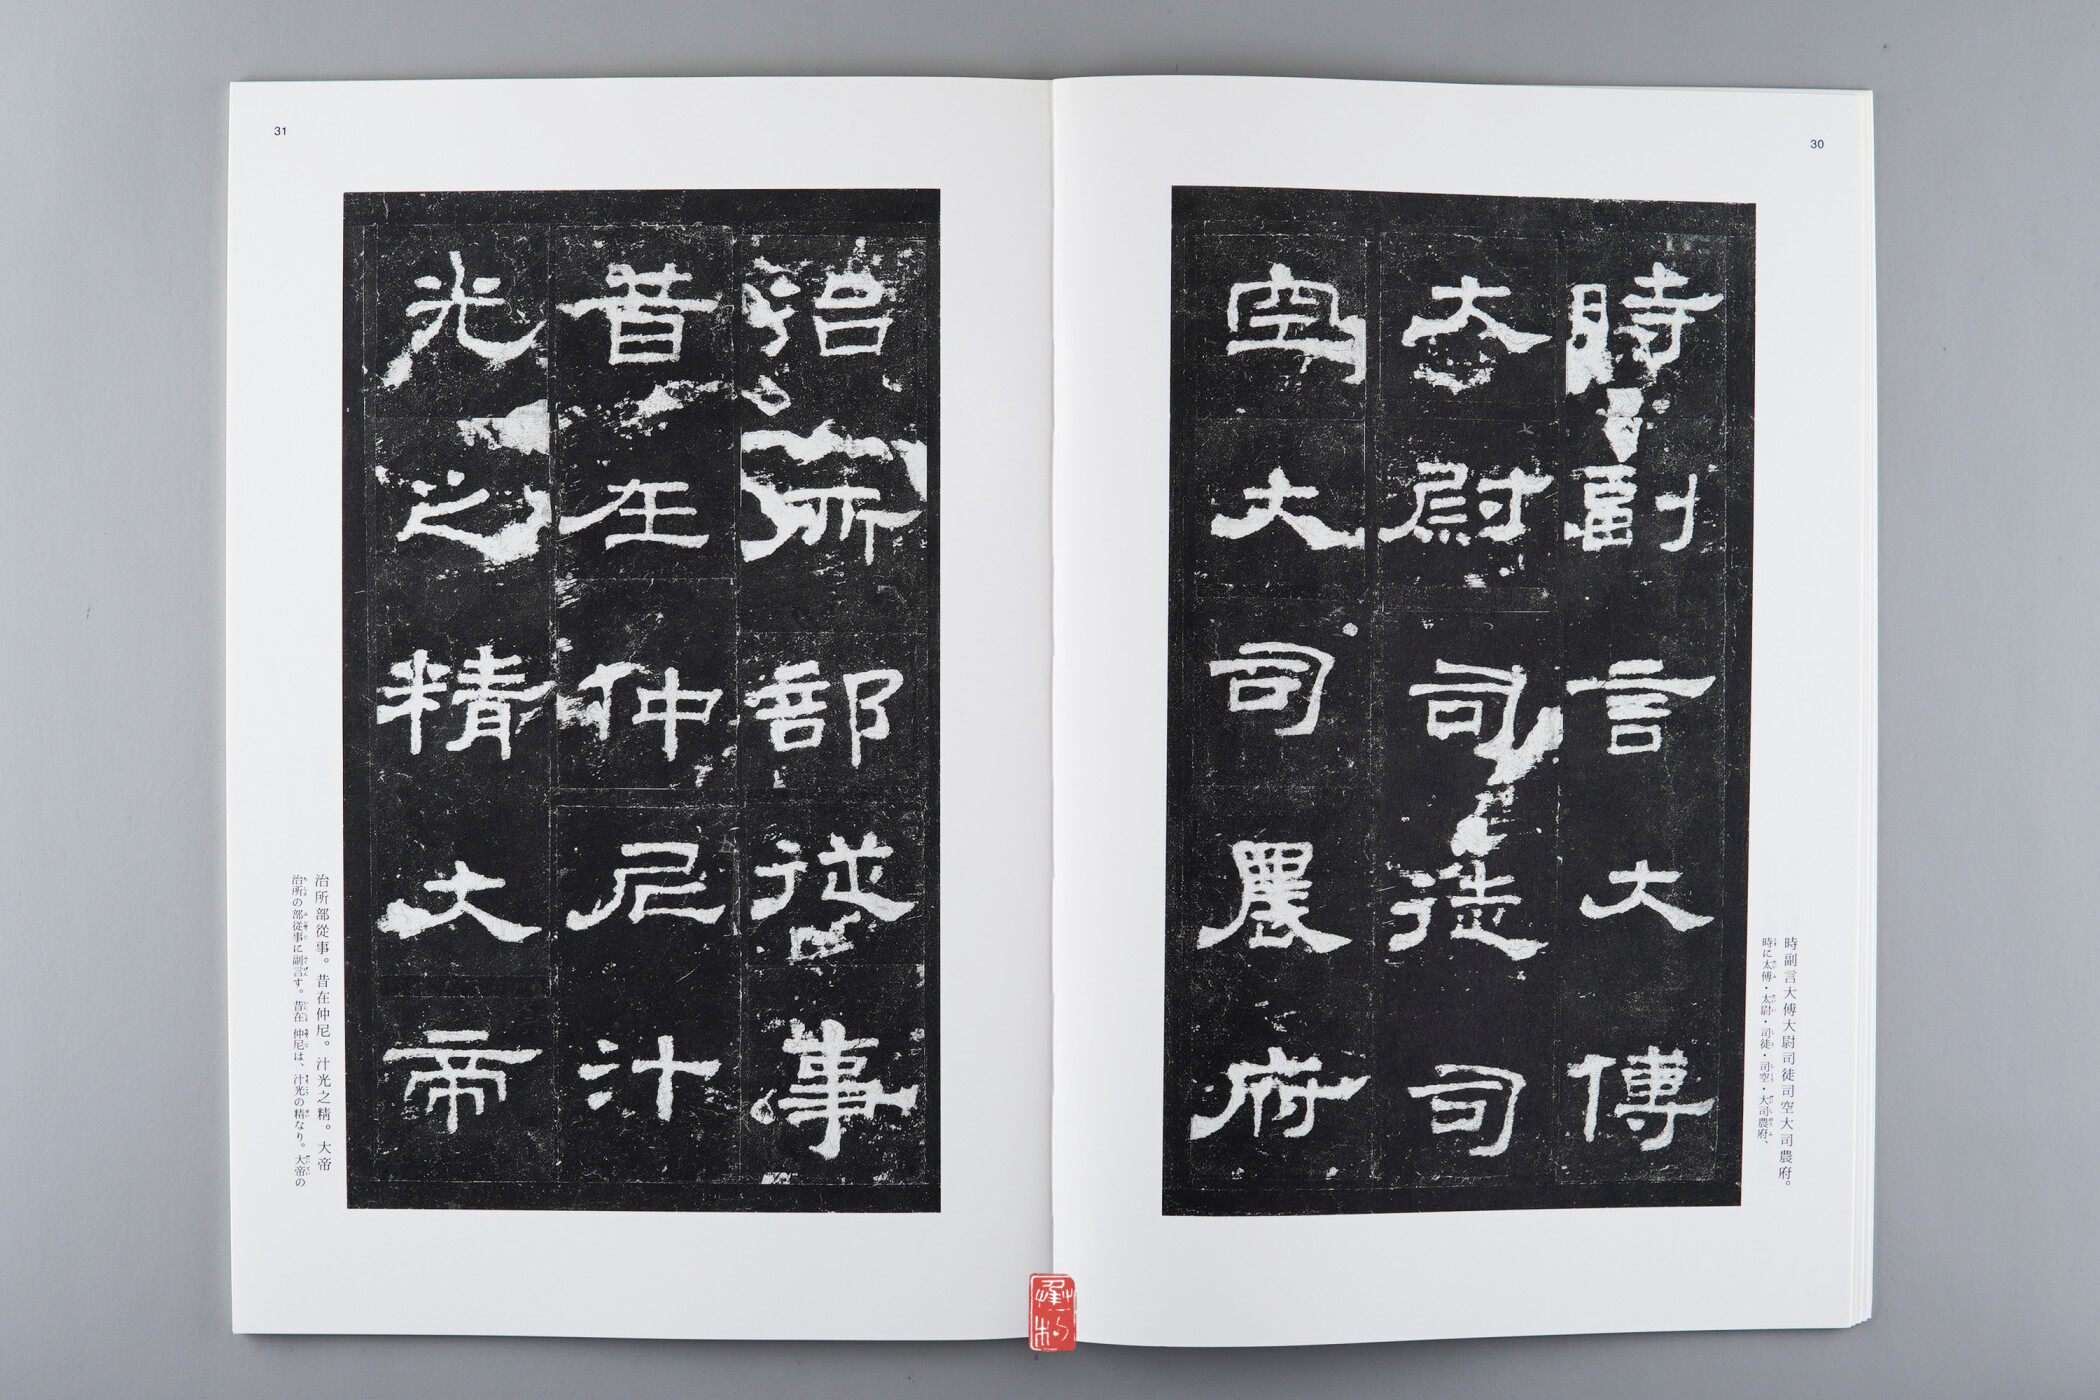 30
時副言大傅
大尉司徒司
空大司農府
時副言大傅大尉司徒司空大司農府。
時に太傅・太尉・司徒・司空・大司農府、
31
治所部從事
昔在仲尼汁
光之精大帝
治所部從事。昔在仲尼。汁光之精。大帝
治所の部従事に副言す。昔在仲尼は、汁光の精なり。大帝の